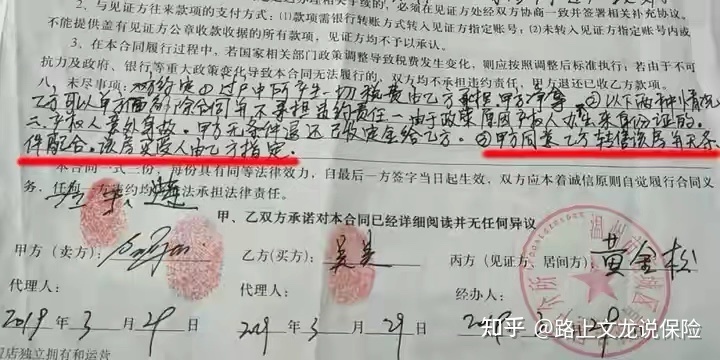 2、与见证方往来款项的支付方式：⑴款项需银行转账方式转入见证方指定账号；⑵未转入见证方指定账号内或
不能提供盖有见证方公章收款收据的所有款项，见证方均不予以承认。
3、在本合同履行过程中，若国家相关部门政策调整导致税费发生变化，则应按照调整后标准执行；若由于不可
抗力及政府、银行等重大政策变化导致本合同无法履行的，双方均不承担违约责任，甲方退还已收乙方款项。
八、未尽事项：①过户中所产生一切税费由乙方承担，甲方净等。②以下两种情况
乙方可以单方面解除合同并不承担违约责任一由于政策原因产权人办出来身份证的。
二、产权人意外身故。甲方无条件退还已收定金给乙方。③甲方同意乙方转售该房并无条
件配合。该房买受人由乙方指定。
本合同一式三份，每份具有同等法律效力，自最后一方签字当日起生效，双方应本着诚信原则自觉履行合同义
务，任何一方违约均
法承担法律责任。
甲、乙双方承诺对本合同已经详细阅读并无任何异议
甲方（卖方）：
乙方(买方)：吴
丙方（见证方、居间方）：黄金松
代理人：
代理人：
经办人：
2019 年 3 月 29 日
2019 年 3 月 29 日
年 月 29 日
店独立拥有和运营
知乎 @路上文龙说保险